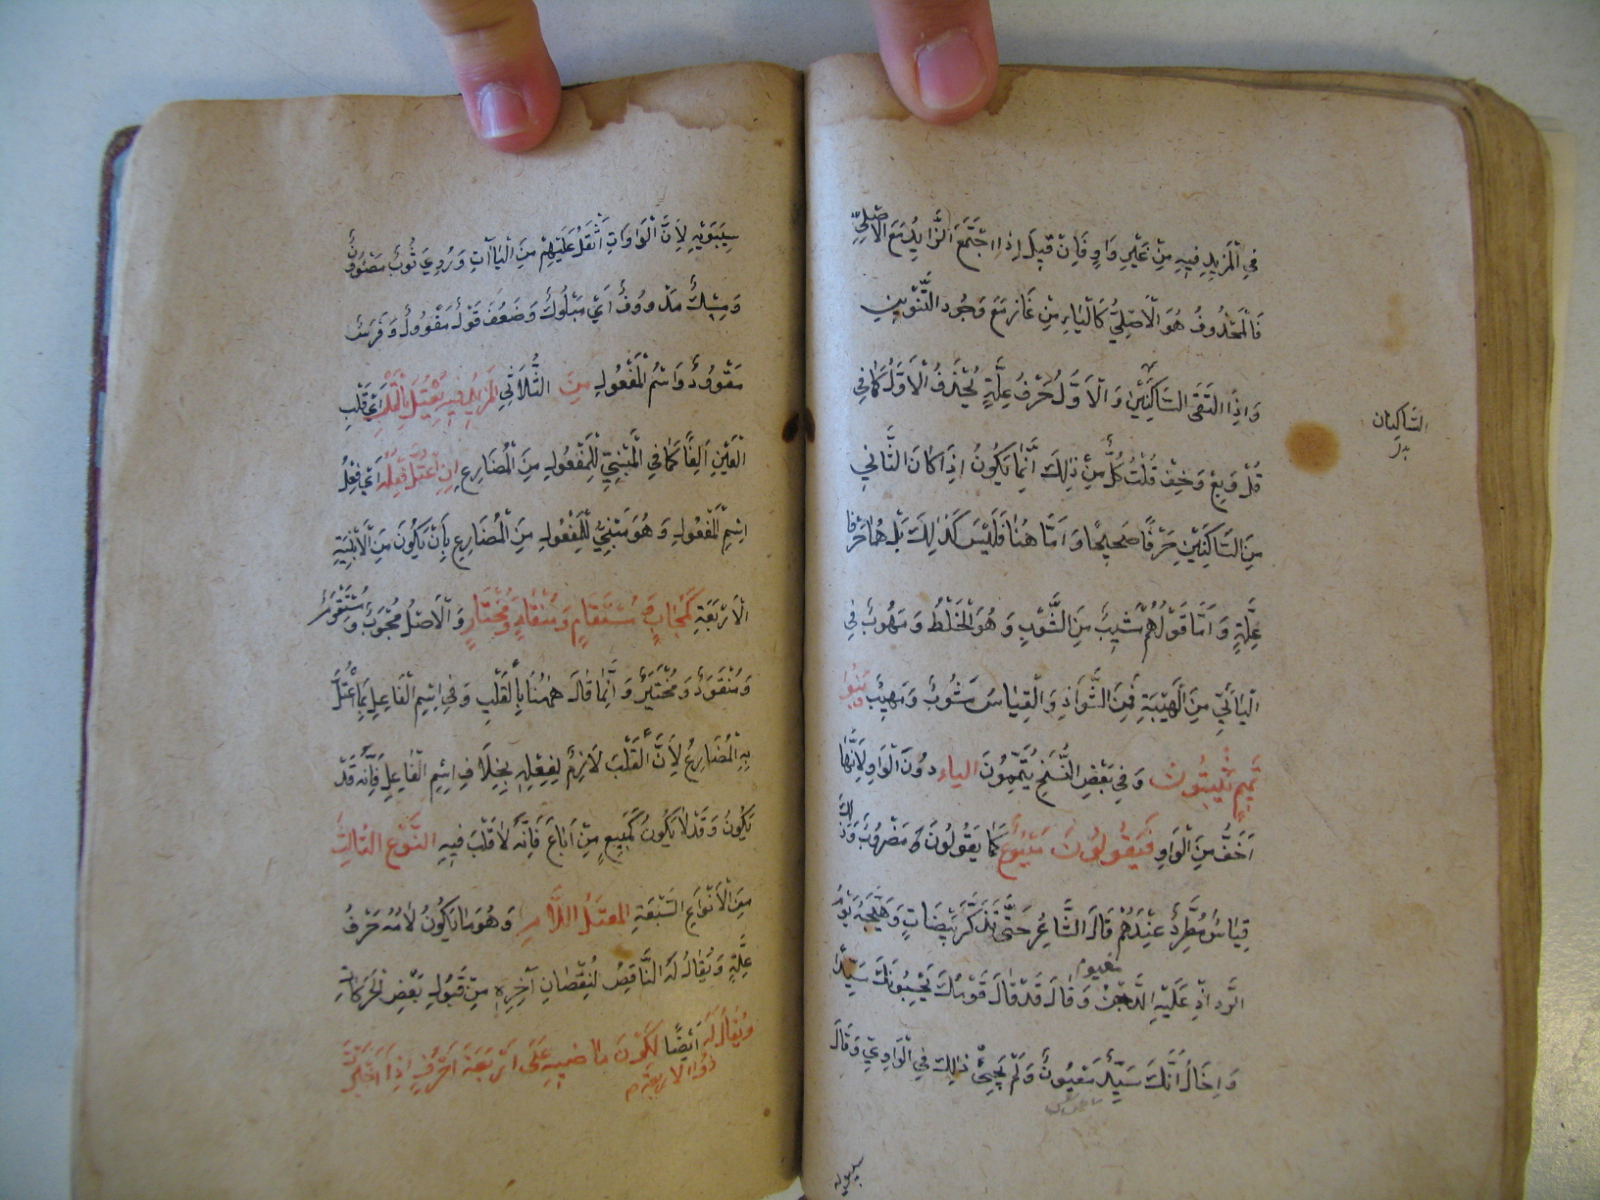 في المزيد فيه من غير واو فان قيل اذا اجتمع الزايد مع الاصلي
فالمحذوف هو الاصلي كالياء من غاز مع وجود التنوين
واذا التقى الساكنين والاول حرف علة يحذف الاول كما في
الساكنان
بدل
قل وبع وخف قلت كل من ذلك انما يكون اذا كان الثاني
من الساكنين حرفا صحيحا واما هنا فليس كذلك بل هما حرفا
علة واما قولهم مشيب من الشوب وهو الخلط ومهوب في
اليائي من الهيبة فمن الشواذ والقياس مشوب ومهيب وبنوا
تميم يثبتون وفي بعض النسخ يتممون الياء دون الواو لانها
اخف من الواو فيقولون مبيوع كما يقولون مضروب وذلك
قياس مطرد عندهم قال الشاعر حتى تذكر بيضات وهيجه يوم
الرذاذ عليه الدجن مغيوم وقال قد قال قومك يحسبونك سيدا
واخال انك سيد معيون ولم يجئ ذلك في الواوي وقال
سيبويه
سيبويه لان الواوات اثقل عليهم من الياآت وروي ثوب مصوون
ومسك مدووف اي مبلول وضعف قول مقوول وفرس
مقوود واسم المفعول من الثلاثي المزيد فيه يعتل بالقلب اي قلب
العين الفا كما في المبني للمفعول من المضارع ان اعتل فعله اي فعل
اسم المفعول وهو مبني للمفعول من المضارع بان يكون من الابنية
الاربعة كمجاب ومستقام ومنقاد ومختار والاصل مجوب ومستقوم
ومنقود ومختير وانما قال ههنا بالقلب وفي اسم الفاعل بما اعتل
به المضارع لان القلب لازم لفعله بخلاف اسم الفاعل فانه قد
يكون وقد لا يكون كمبيع من اباع فانه لا قلب فيه النوع الثالث
من الانواع السبعة المعتل اللام وهو ما يكون لامه حرف
علة ويقال له الناقص لنقصان آخره من قبول بعض الحركات
ويقال له ايضا ذوا الاربعة لكون ماضيه على اربعة احرف اذا اخبرت